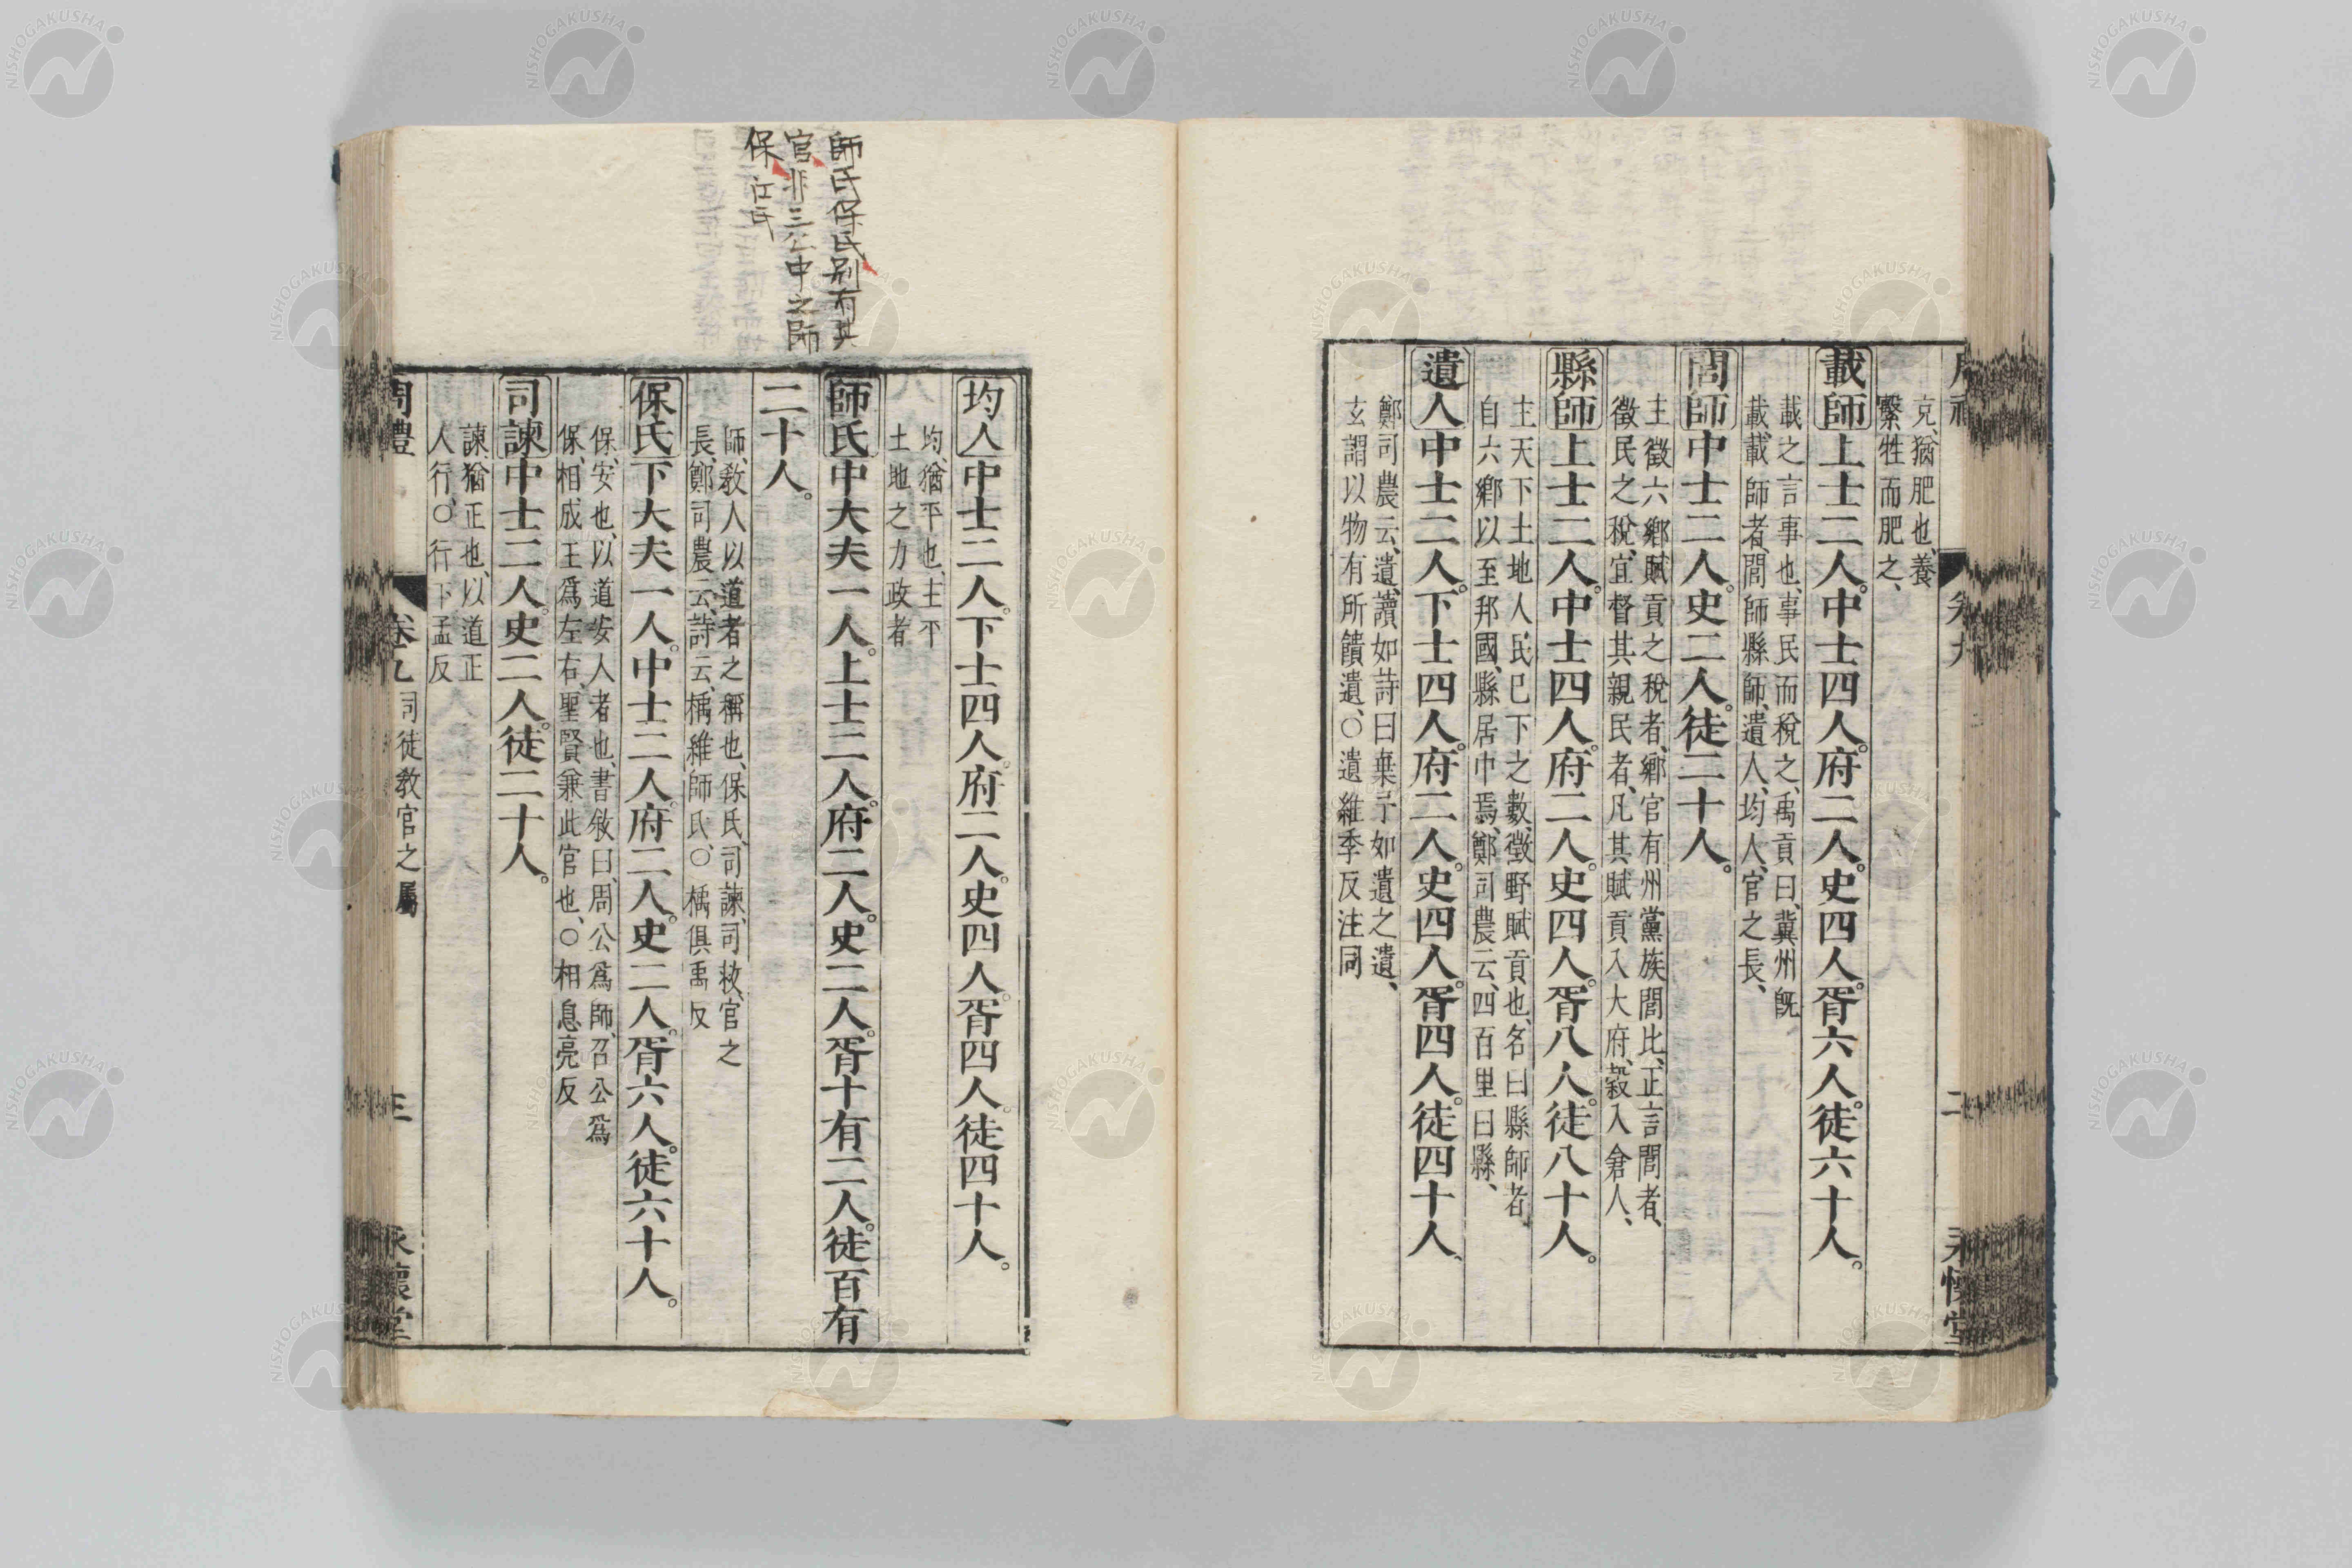 充、猶肥也、養
繫牲而肥之、
載師上士二人。中士四人。府二人。史四人。胥六人。徒六十人。
載之言事也、事民而稅之、禹貢曰、冀州旣
載、載師者、閭師縣師、遺人、均人、官之長、
閭師中士二人。史二人。徒二十人。
主徵六鄉賦貢之稅者、鄉官有州黨族閭比、正言閭者、
徵民之稅、宜督其親民者、凡其賦貢入大府、穀入倉人、
縣師上士二人。中士四人。府二人。史四人。胥八人。徒八十人。
主天下土地人民已下之數、徵野賦貢也、名曰縣師者、
自六鄉以至邦國、縣居中焉、鄭司農云、四百里曰縣、
遺人中士二人。下士四人。府二人。史四人。胥四人。徒四十人、
鄭司農云、遺、讀如詩曰棄予如遺之遺、
玄謂以物有所饋遺、○遺維季反注同
均人中士二人。下士四人。府二人。史四人。胥四人。徒四十人。
均、猶平也、主平
土地之力政者
師氏中大夫一人。上士二人。府二人。史二人。胥十有二人。徒百有
二十人。
師、敎人以道者之稱也、保氏、司諫、司救、官之
長、鄭司農云、詩云、楀維師氏、○楀俱禹反
保氏下大夫一人。中士二人。府二人。史二人。胥六人。徒六十人。
保、安也、以道安人者也、書敘曰、周公爲師、召公爲
保、相成王爲左右、聖賢兼此官也、○相息亮反
司諫中士二人。史二人。徒二十人。
諫猶正也、以道正
人行、○行下孟反
周禮 卷九 司徒敎官之屬 三 永懷堂
師氏保氏別有其
官非三公中之師
保 江氏
NISHOGAKUSHA